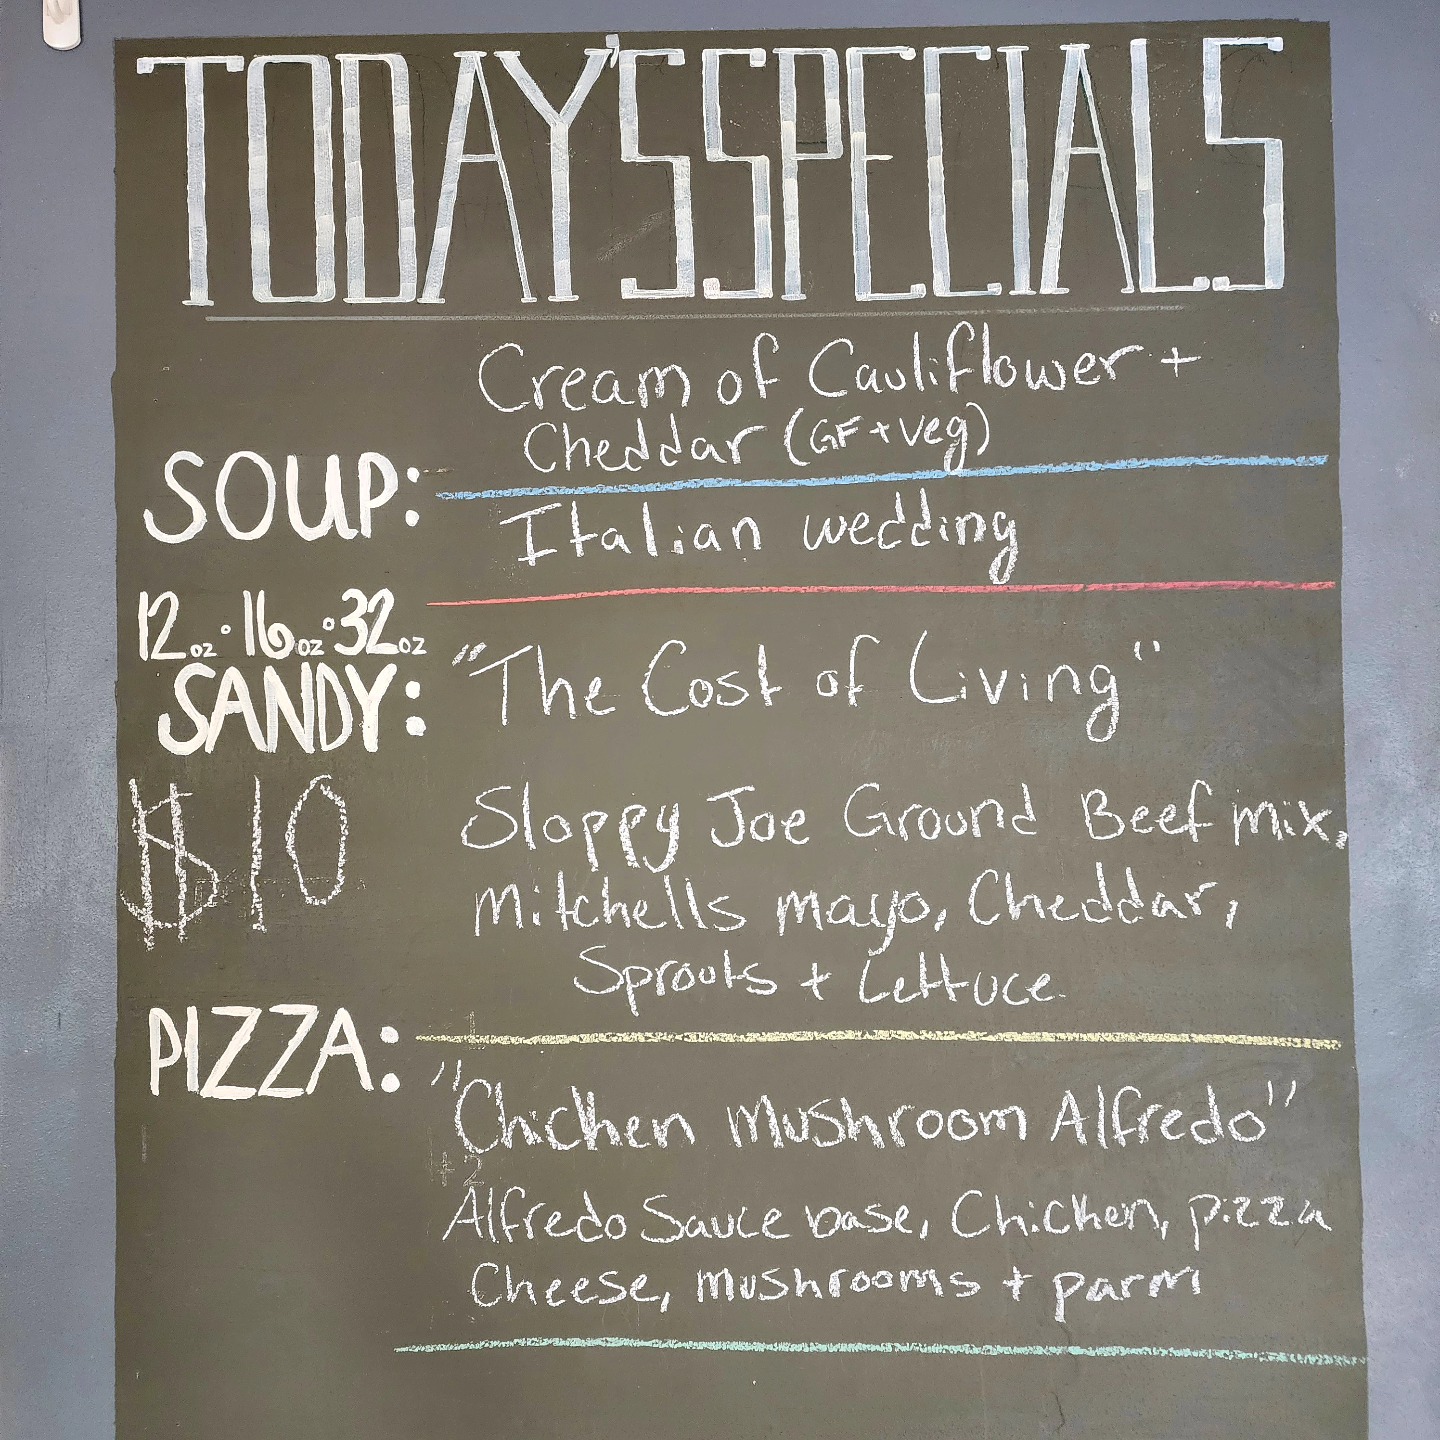 TODAY'S SPECIALS
Cream of Cauliflower +
Cheddar (GF + veg)
SOUP:
Italian wedding
12oz · 16oz · 32oz
SANDY:
"The Cost of Living"
$10
Sloppy Joe Ground Beef mix,
Mitchells mayo, Cheddar,
Sprouts + Lettuce
PIZZA:
"Chicken Mushroom Alfredo"
+2
Alfredo Sauce base, Chicken, pizza
Cheese, mushrooms + parm